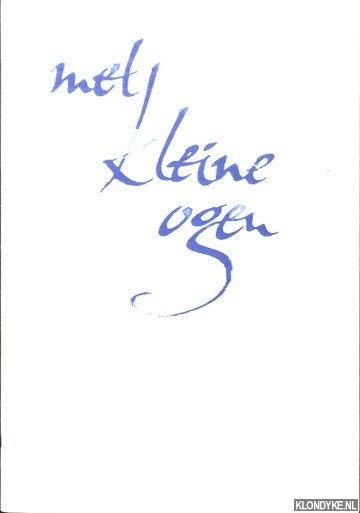 met
kleine
ogen
KLONDYKE.NL